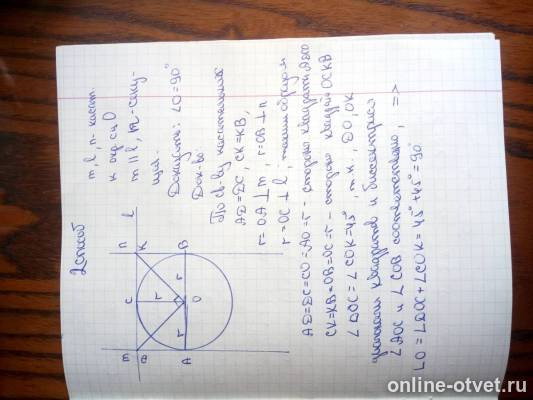 2 способ
m, l, n - касат.
к окр с ц O
m || l, n - секу-
щая.
Доказать: ∠O = 90°
Док-во:
По св-ву касательных
AD = DC, CK = KB,
r = OA ⊥ m, r = OB ⊥ n
r = OC ⊥ l, таким образом
AD = DC = CO = AO = r - сторона квадрата ADCO
CK = KB = OB = OC = r - сторона квадрата OCKB
∠DOC = ∠COK = 45°, т.к. DO, OK
квадратов и биссектрисы
∠AOC и ∠COB соответственно, =>
∠O = ∠DOC + ∠COK = 45° + 45° = 90°
n K B
l C r r r O
m D A
online-otvet.ru